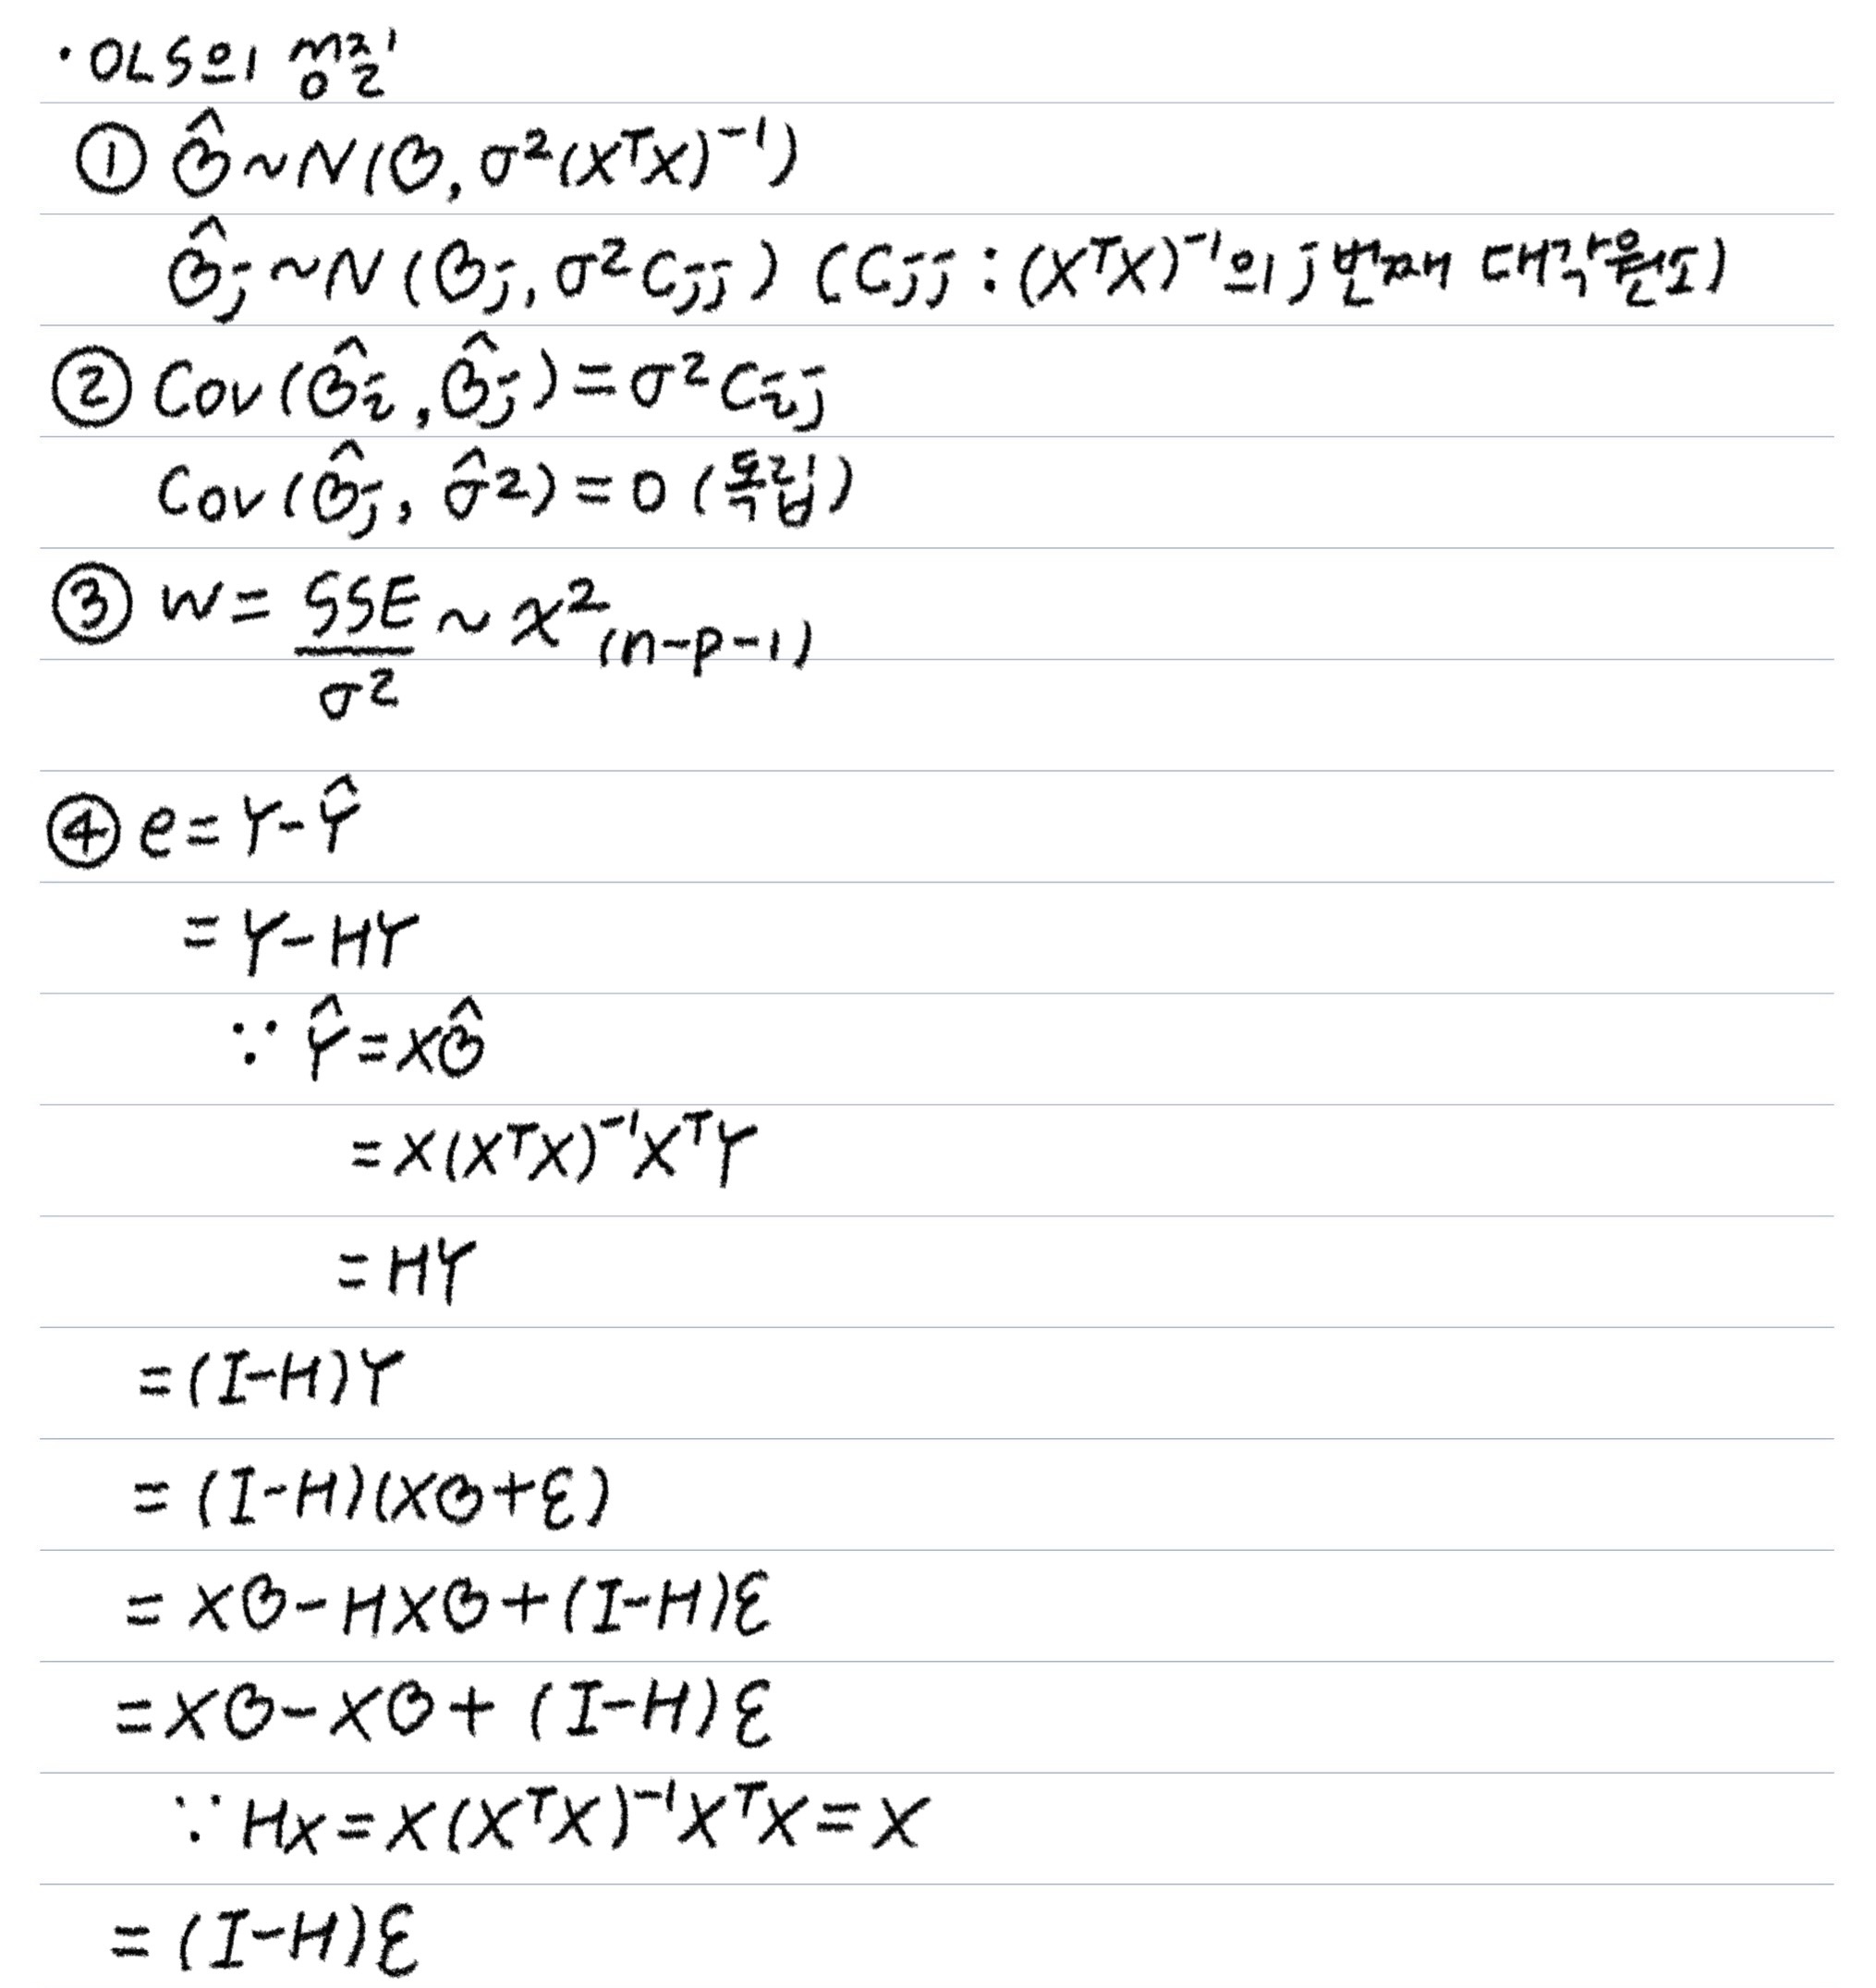 · OLS의 성질
① β̂ ~ N(β, σ²(XᵀX)⁻¹)
β̂ⱼ ~ N(βⱼ, σ²Cⱼⱼ) (Cⱼⱼ : (XᵀX)⁻¹의 j번째 대각원소)
② Cov(β̂ᵢ, β̂ⱼ) = σ²Cᵢⱼ
Cov(β̂ⱼ, σ̂²) = 0 (독립)
③ W = SSE/σ² ~ χ²(n-p-1)
④ e = Y - Ŷ
= Y - HY
∵ Ŷ = Xβ̂
= X(XᵀX)⁻¹XᵀY
= HY
= (I-H)Y
= (I-H)(Xβ+ε)
= Xβ - HXβ + (I-H)ε
= Xβ - Xβ + (I-H)ε
∵ HX = X(XᵀX)⁻¹XᵀX = X
= (I-H)ε